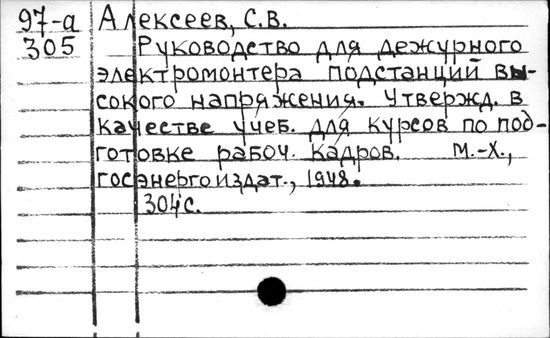 97-а Алексеев, С.В.
305 Руководство для дежурного
электромонтера подстанций вы-
сокого напряжения. Утвержд. в
качестве учеб. для курсов по под-
готовке рабоч. кадров. М.-Х.,
госэнергоиздат., 1948.
304с.